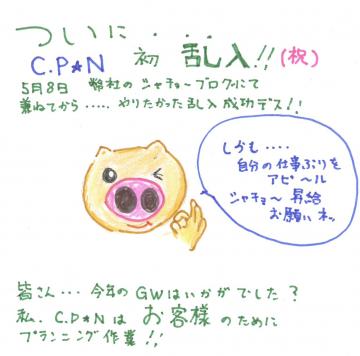 ついに・・・・
C.P★N 初 乱入!!(祝)
5月8日 弊社のシャチョ〜ブログにて
兼ねてから・・・・・やりたかった乱入成功デス!!
しかも・・・・
自分の仕事ぶりを
アピ〜ル
シャチョ〜 昇給
お願いネッ
皆さん・・・今年のGWはいかがでした?
私、C.P★Nは お客様のために
プランニング作業!!